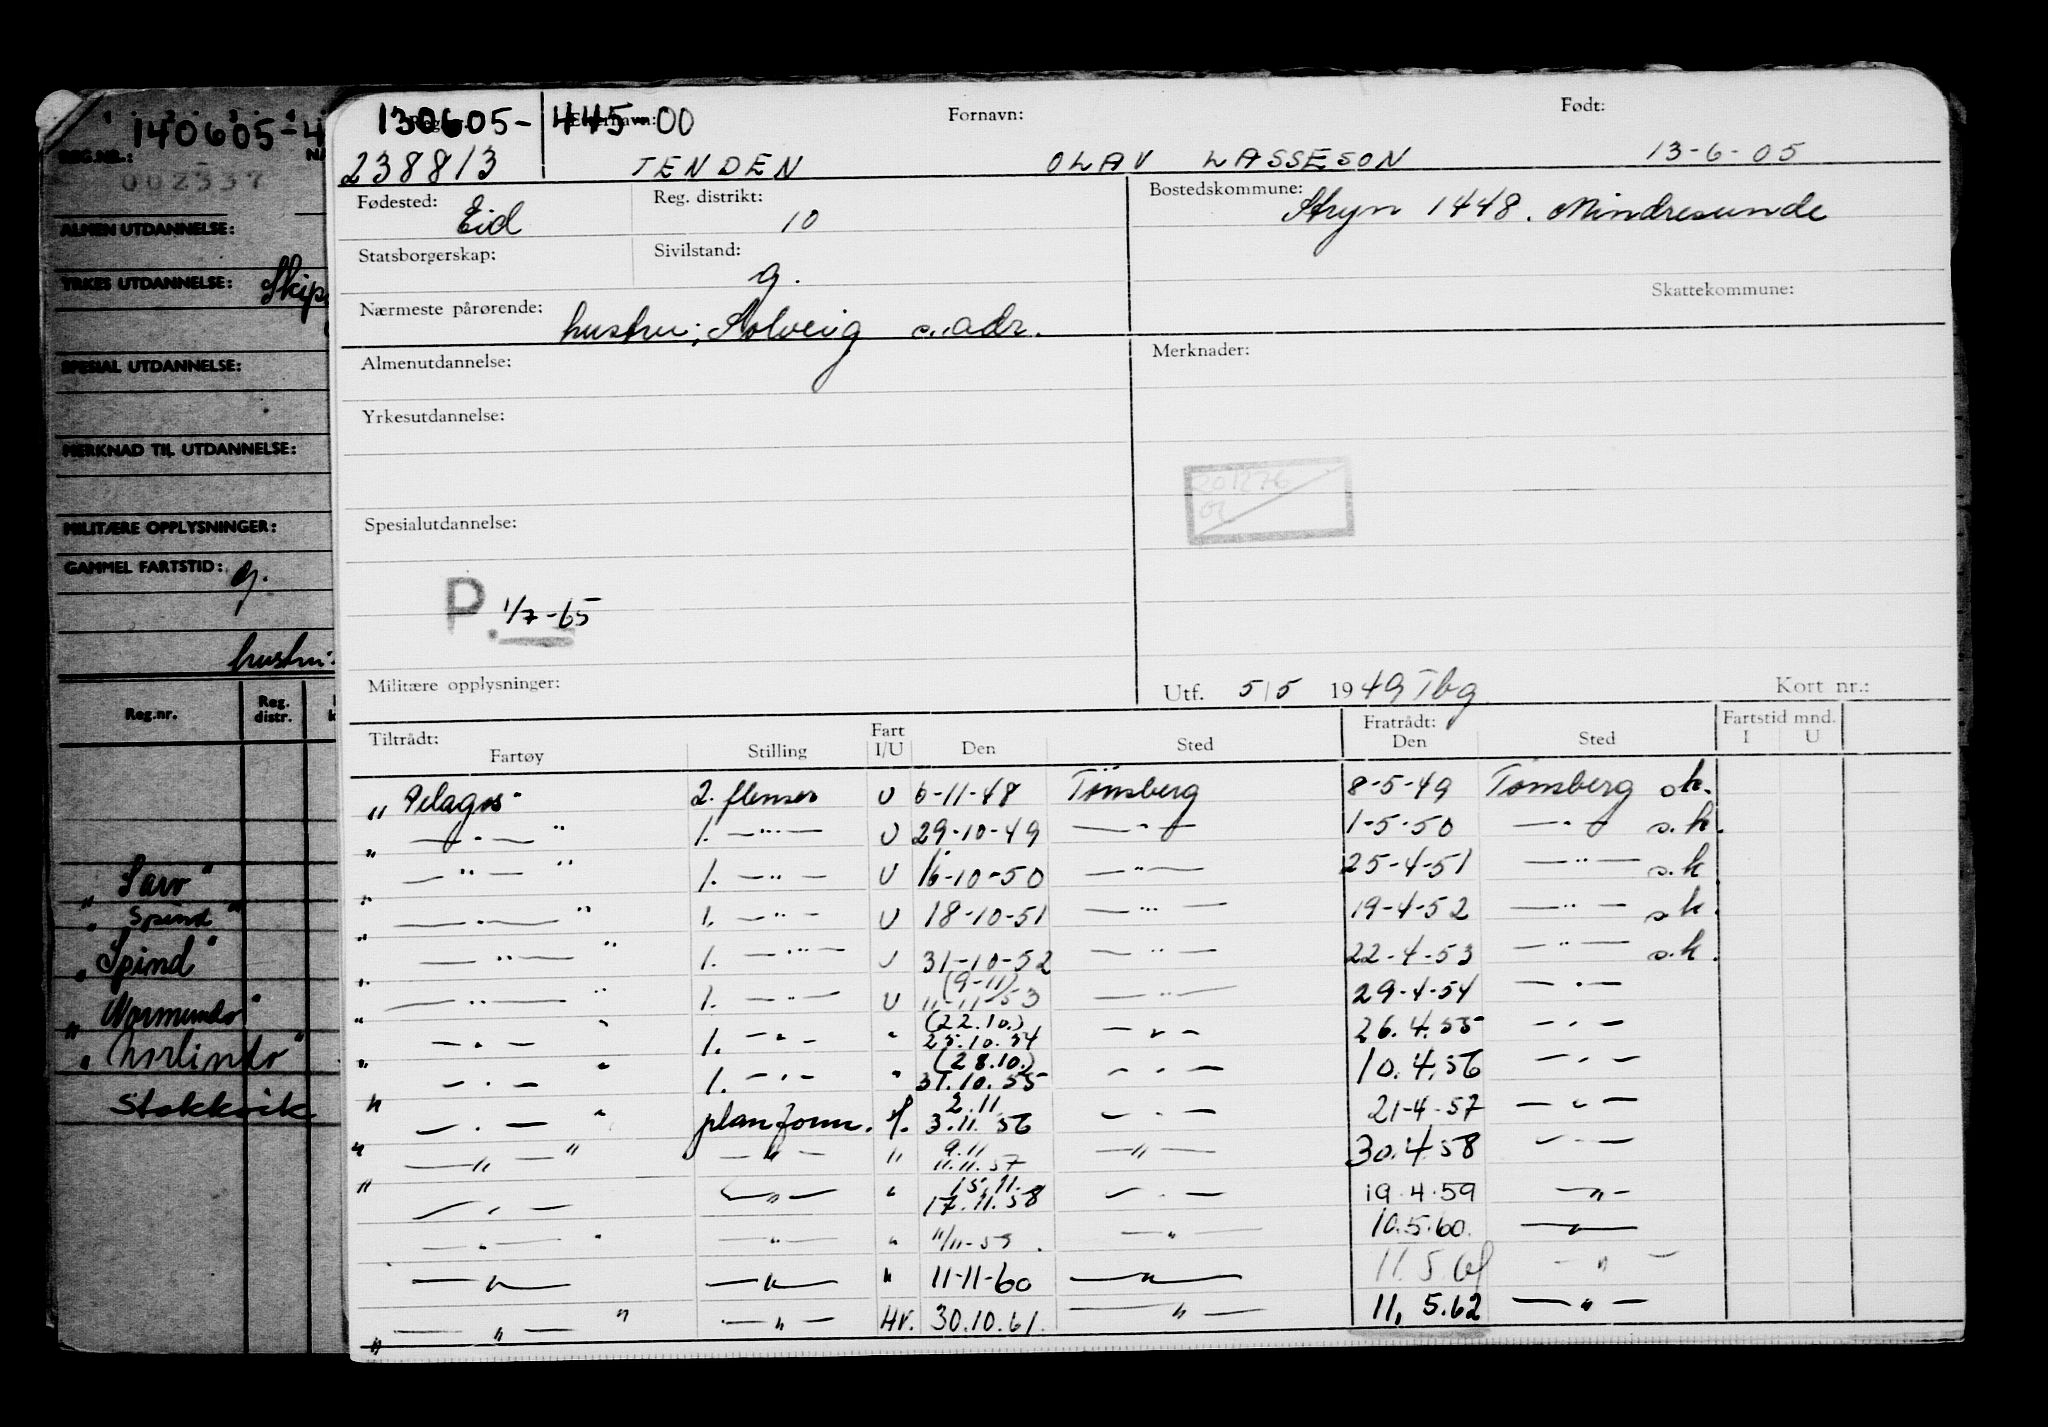 140605-4
REG.NR.:
002337
ALMEN UTDANNELSE:
YRKES UTDANNELSE:
SPESIAL UTDANNELSE:
MERKNAD TIL UTDANNELSE:
MILITÆRE OPPLYSNINGER:
GAMMEL FARTSTID: g.
hustru:
Reg.nr. Reg. distr.
" Spind "
" Spind "
Stokkvik
130605- 445-00
Fornavn: Født:
238813 TENDEN OLAV LASSESON 13-6-05
Fødested: Eid Reg. distrikt: 10 Bostedskommune: Stryn 1448. Mindresunde
Statsborgerskap: Sivilstand: g. Skattekommune:
Nærmeste pårørende: hustru; Solveig s. adr.
Almenutdannelse: Merknader:
Yrkesutdannelse:
201276
Spesialutdannelse:
P. 1/7-65
Militære opplysninger: Utf. 5/5 1949 Tbg Kort nr.:
Tiltrådt: Fartøy Stilling Fart I/U Den Sted Fratrådt: Den Sted Fartstid mnd. I U
" Pelagos " 2. flenser U 6-11-48 Tønsberg 8-5-49 Tønsberg s.k.
" — " — " 1. — " — U 29-10-49 — " — 1-5-50 — " — s.k.
" — " — " 1. — " — U 16-10-50 — " — 25-4-51 — " — s.k.
" — " — " 1. — " — U 18-10-51 — " — 19-4-52 — " — s.k.
" — " — " 1. — " — U 31-10-52 — " — 22-4-53 — " — s.k.
" — " — " 1. — " — U (9-11) 11-11-53 — " — 29-4-54 — " —
" — " — " 1. — " — " (22.10.) 25.10.54 — " — 26.4.55 — " —
" — " — " 1. — " — " (28.10.) 31.10.55 — " — 10.4.56 — " —
" — " — " planform. 2.11 3.11.56 — " — 21-4-57 — " —
" — " — " — " — " 9.11 11.11.57 — " — 30.4.58 — " —
" — " — — " — " 15.11. 17.11.58 — " — 19.4.59 — " —
— " — " — " — " 11/11-59. — " — 10.5.60. — " —
— " — — " — " 11-11-60 — " — 11.5.61 — " —
" — " — " — " — Hv. 30.10.61. — " — 11.5.62 — " —